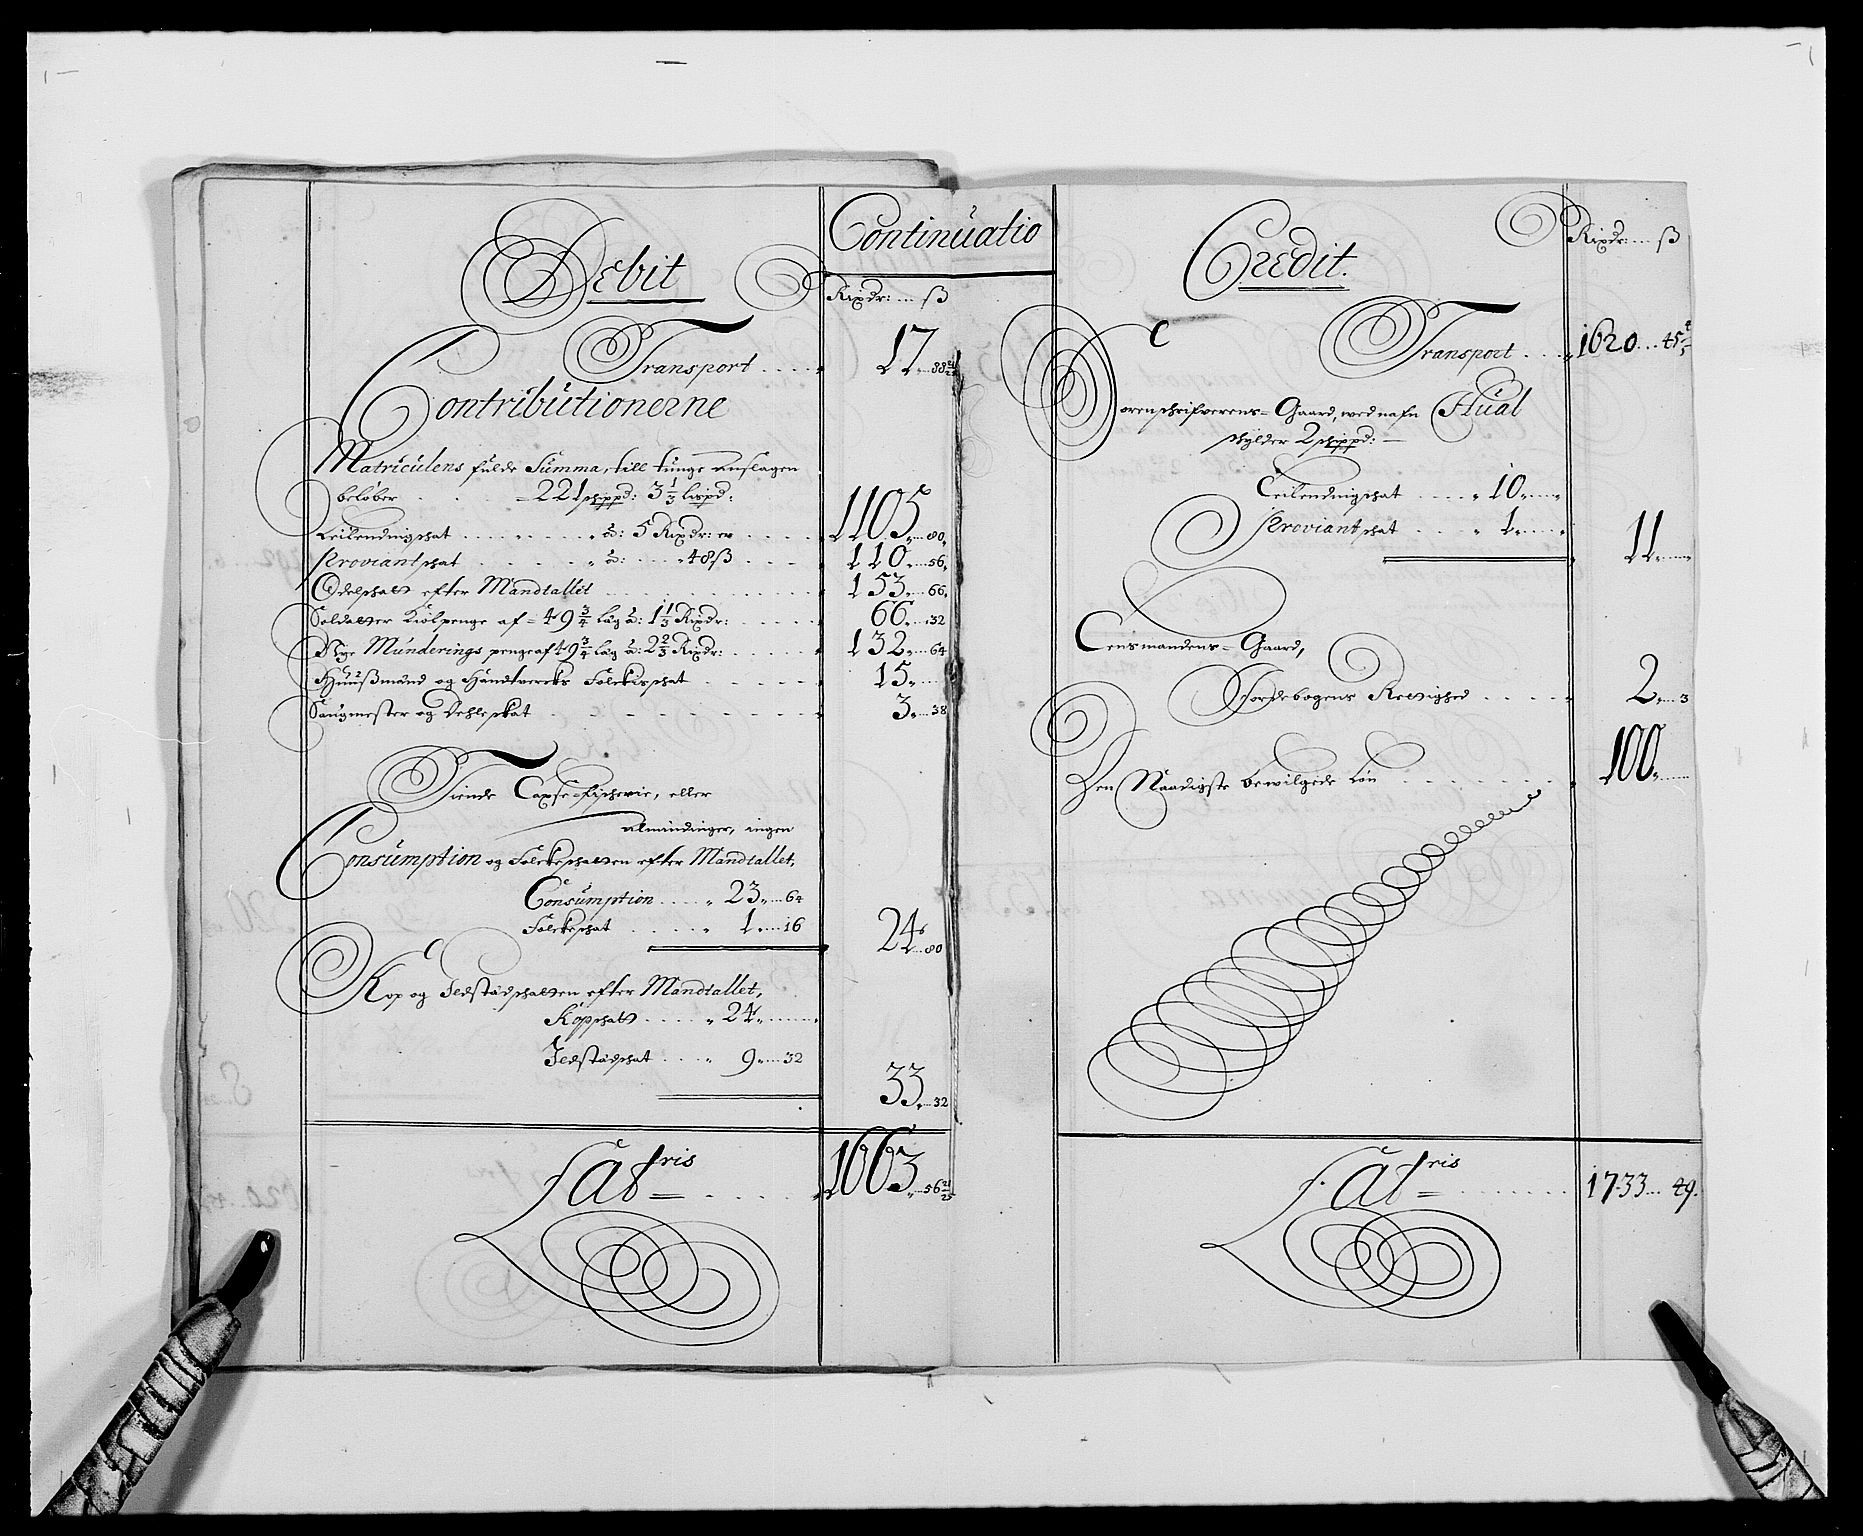 Debit
Continuatio
Rixdr: ... ß
Transport .... 17 .. 88 21/25
Contributionerne
Matriculens fulde Summa, till tunge anslagen
beløber . . . 221 schippd: 3 1/3 lispd:
Leilendingschat ...... à: 5 Rixdr: er .... 1105 .. 80
Proviantschat ...... à: .... 48 ß .... 110 .. 56
Odelschatt efter Mandtallet .... 153 .. 66
Soldatter Kiolpenge af 49 3/4 læg à: 1 1/3 Rixdr: .... 66 .. 32
Nye Munderings penge af 49 3/4 læg à: 2 2/3 Rixdr: .... 132 .. 64
Huußmænd og Handtvercks Folckischat .... 15 ..
Saugmester og Dehleskat .... 3 .. 38
Tiende Laxsefischerie, eller
almindinger, ingen
Consumption og Folckeschatten efter Mandtallet,
Consumption .... 23 .. 64
Folckeschat .... 1 .. 16
24 .. 80
Kop og Ildstædschatten efter Mandtallet,
Kopschatt .... 24 ..
Ildstædschat .... 9 .. 32
33 .. 32
Latris .... 1663 .. 56 21/25
Credit.
Rixdr: ... ß
Transport .... 1620 ... 45 4/5
Sorenschrifverens Gaard, wed nafn Hual
schylder 2 schippd:
Leilendingschat .... 10 ..
Proviantschat .... 1 ..
11 ..
Lensmandens Gaard,
Jordebogens Rettighed .... 2 .. 3
Den Naadigste bewilgede Løn .... 100 ..
Latris .... 1733 ... 49.